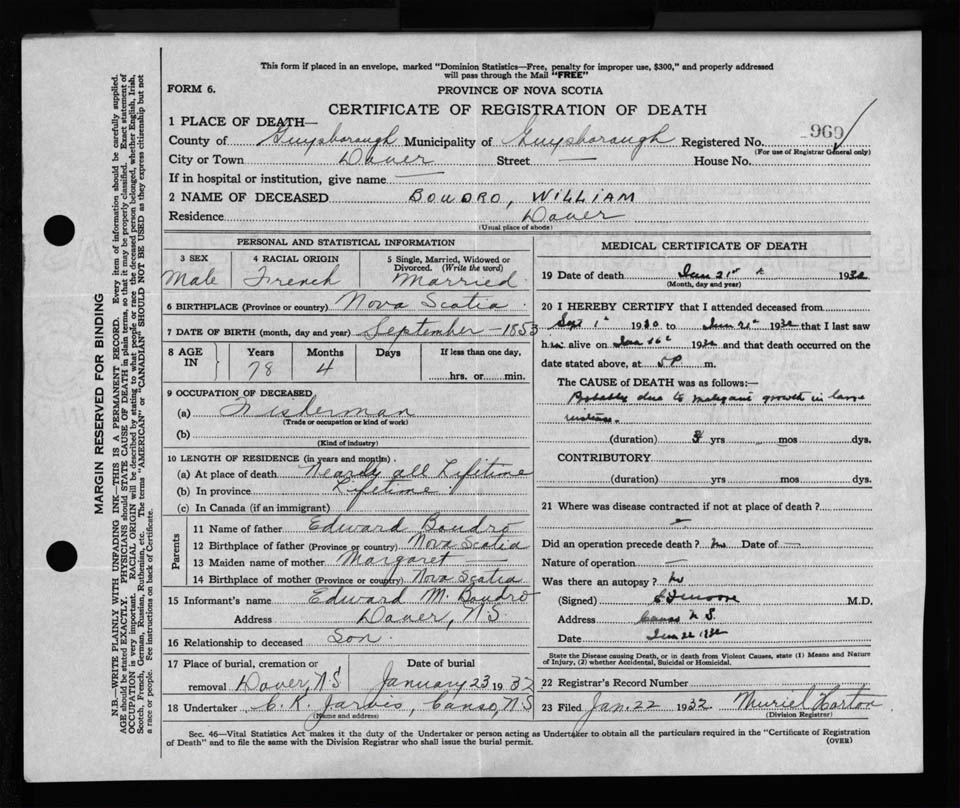 This form if placed in an envelope, marked "Dominion Statistics—Free, penalty for improper use, $300," and properly addressed
will pass through the Mail "FREE"
FORM 6.
PROVINCE OF NOVA SCOTIA
CERTIFICATE OF REGISTRATION OF DEATH
1 PLACE OF DEATH—
County of Guysborough Municipality of Guysborough Registered No. 969
(For use of Registrar General only)
City or Town Dover Street — House No.
If in hospital or institution, give name —
2 NAME OF DECEASED BOUDRO, WILLIAM
Residence Dover
(Usual place of abode)
PERSONAL AND STATISTICAL INFORMATION
3 SEX 4 RACIAL ORIGIN 5 Single, Married, Widowed or
Divorced. (Write the word)
Male French Married
6 BIRTHPLACE (Province or country) Nova Scotia
7 DATE OF BIRTH (month, day and year) September – 1853
8 AGE IN Years Months Days If less than one day,
78 4 hrs. or min.
9 OCCUPATION OF DECEASED
(a) Fisherman
(Trade or occupation or kind of work)
(b)
(Kind of industry)
10 LENGTH OF RESIDENCE (in years and months)
(a) At place of death Nearly all Lifetime
(b) In province Lifetime
(c) In Canada (if an immigrant)
Parents
11 Name of father Edward Boudro
12 Birthplace of father (Province or country) Nova Scotia
13 Maiden name of mother Margaret —
14 Birthplace of mother (Province or country) Nova Scotia
15 Informant's name Edward M. Boudro
Address Dover, N S
16 Relationship to deceased Son
17 Place of burial, cremation or Date of burial
removal Dover, N S January 23 1932
18 Undertaker C. K. Jarvis, Canso, N S
(Name and address)
MEDICAL CERTIFICATE OF DEATH
19 Date of death Jan 21st 1932
(Month, day and year)
20 I HEREBY CERTIFY that I attended deceased from
Sept 1st 1930 to Jan 21st 1932 that I last saw
him alive on Jan 16th 1932 and that death occurred on the
date stated above, at 5 P m.
The CAUSE of DEATH was as follows:—
Probably due to malignant growth in large
intestine.
(duration) 3 yrs mos dys.
CONTRIBUTORY
(duration) yrs mos dys.
21 Where was disease contracted if not at place of death?
—
Did an operation precede death? No Date of —
Nature of operation —
Was there an autopsy? No
(Signed) Moore M.D.
Address Canso N S.
Date Jan 22 1932
State the Disease causing Death, or in death from Violent Causes, state (1) Means and Nature
of Injury, (2) whether Accidental, Suicidal or Homicidal.
22 Registrar's Record Number
23 Filed Jan. 22 1932 Muriel Horton
(Division Registrar)
Sec. 46—Vital Statistics Act makes it the duty of the Undertaker or person acting as Undertaker to obtain all the particulars required in the "Certificate of Registration
of Death" and to file the same with the Division Registrar who shall issue the burial permit.
(OVER)
MARGIN RESERVED FOR BINDING
N.B.—WRITE PLAINLY WITH UNFADING INK—THIS IS A PERMANENT RECORD. Every item of information should be carefully supplied.
AGE should be stated EXACTLY. PHYSICIANS should STATE CAUSE OF DEATH in plain terms, so that it may be properly classified. Exact statement of
OCCUPATION is very important. RACIAL ORIGIN will be described by stating to what people or race the deceased person belonged, whether English, Irish,
Scotch, French, German, Russian, Ruthenian, etc. The terms "AMERICAN" or "CANADIAN" SHOULD NOT BE USED as they express citizenship but not
a race or people. See instructions on back of Certificate.